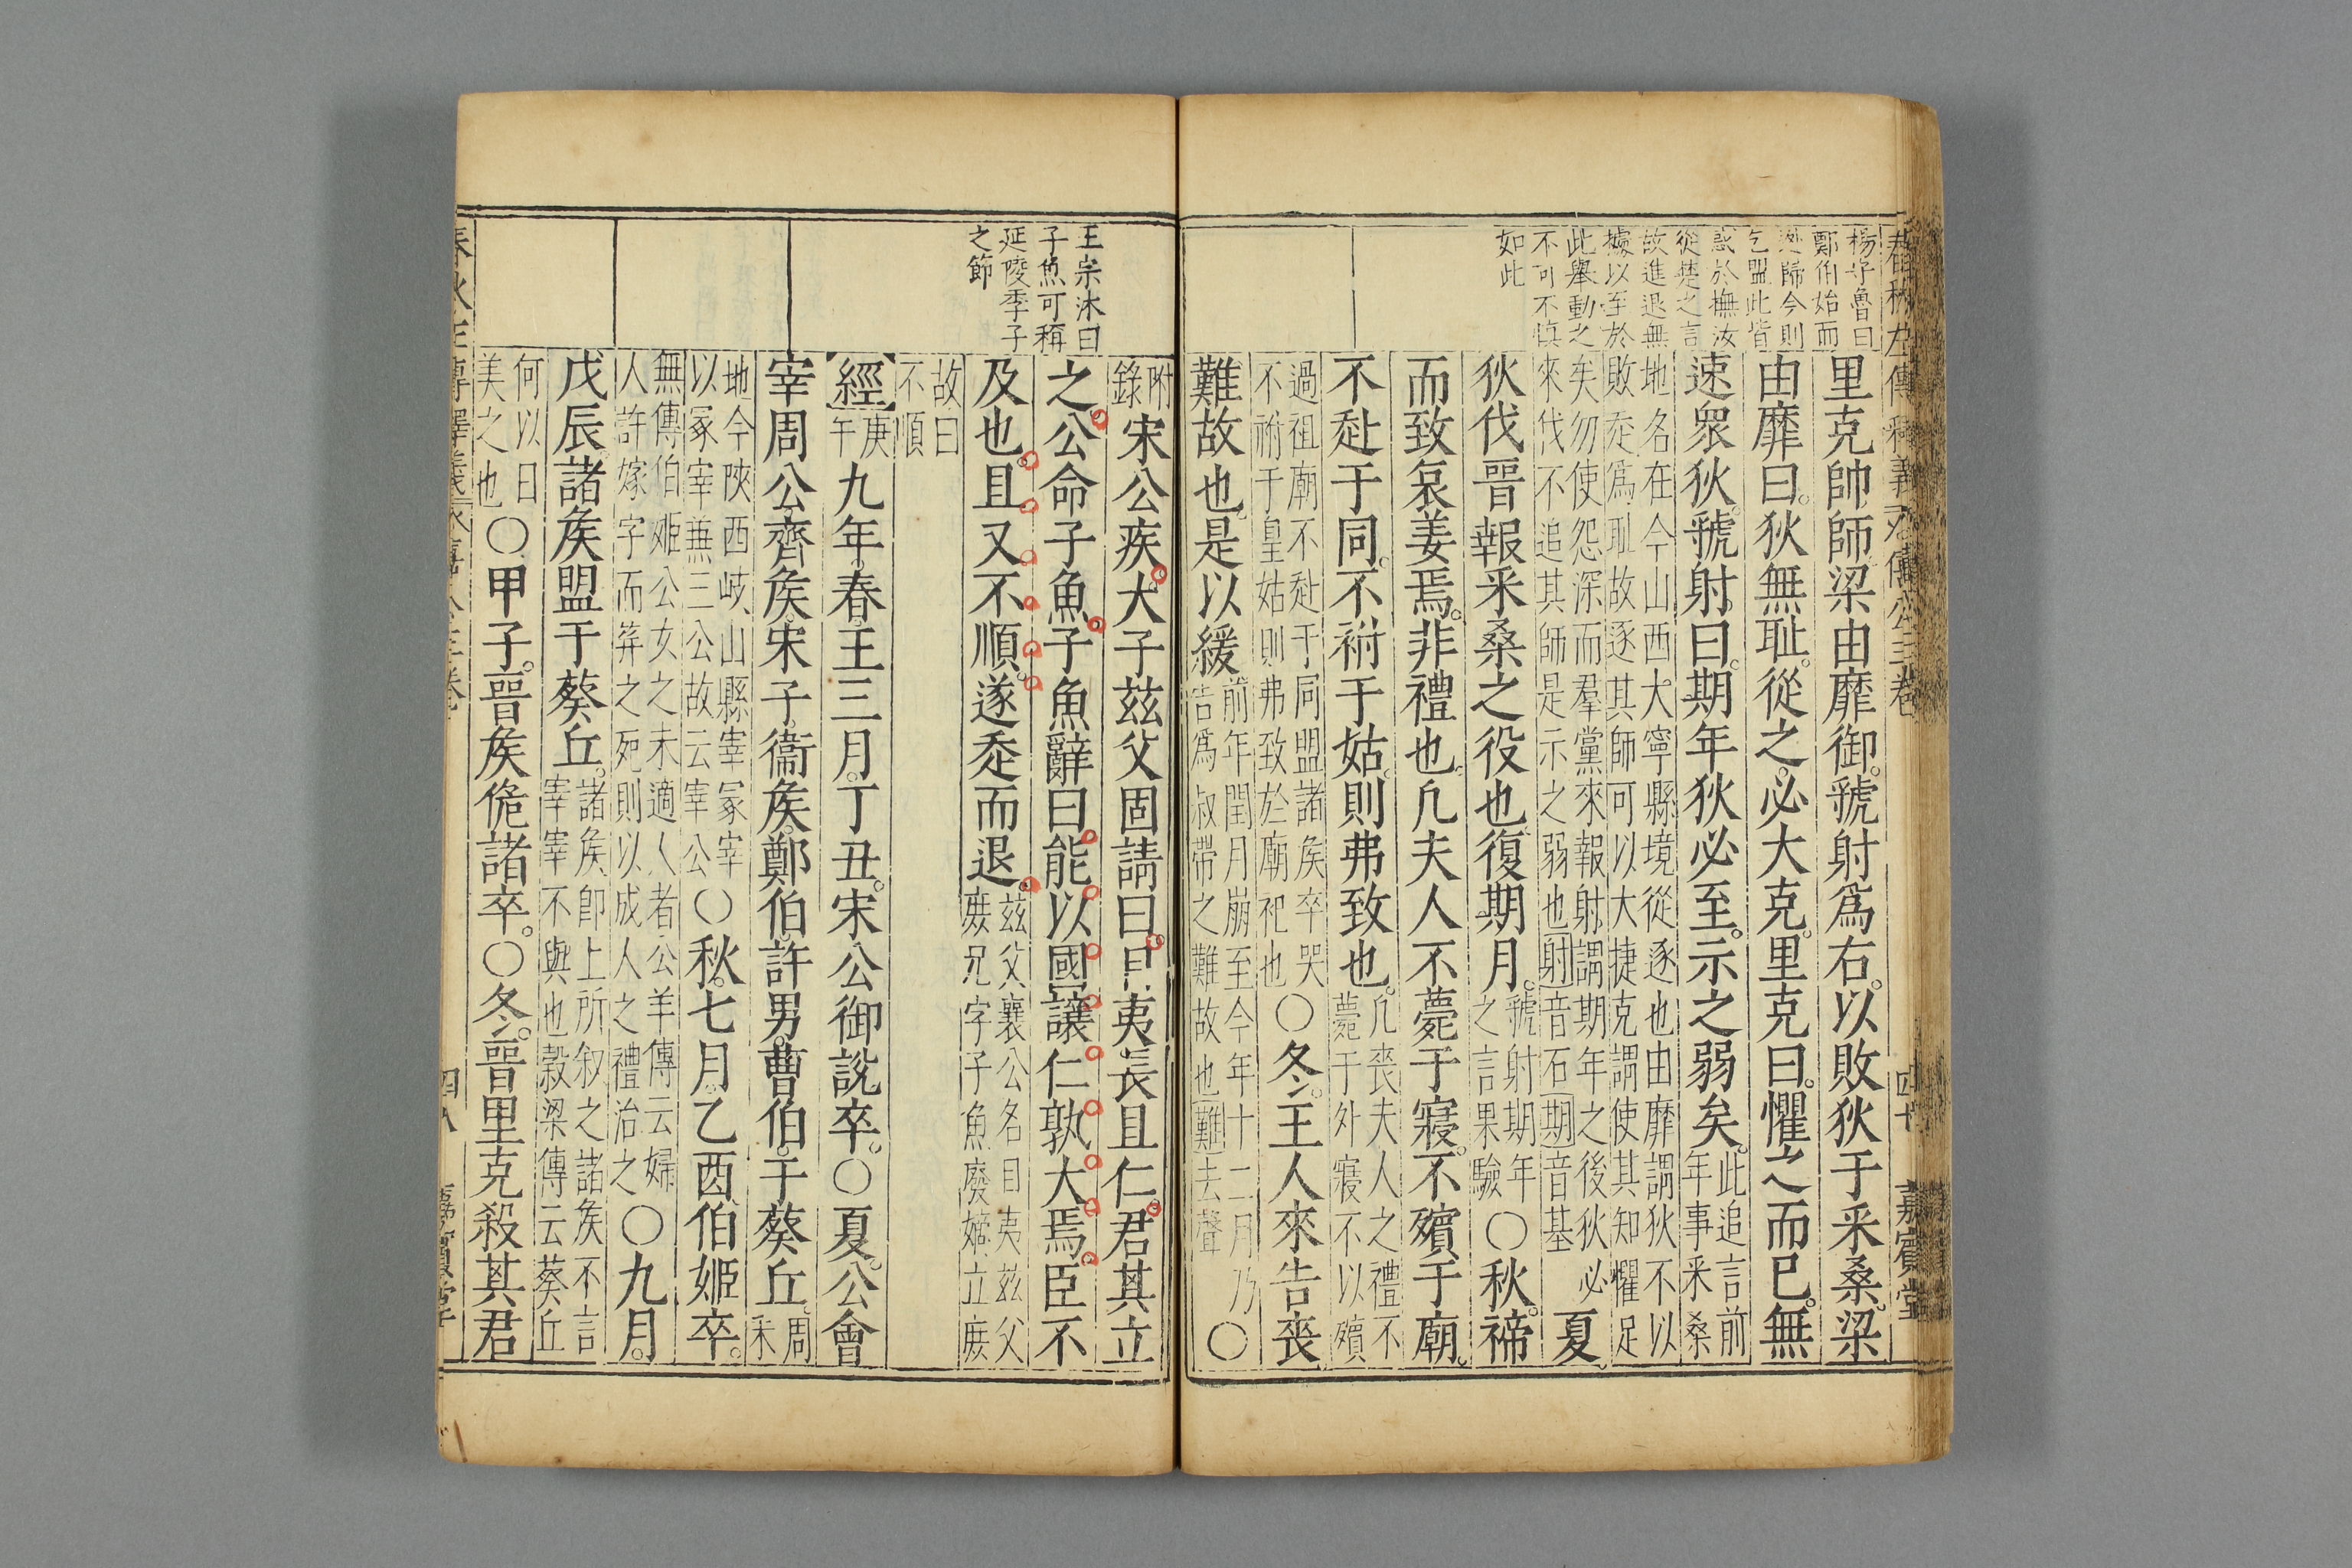 楊子魯曰
鄭伯始而
逃歸今則
乞盟此皆
惑於撫汝
從楚之言
故進退無
據以至於
此舉動之
不可不慎
如此
里克帥師梁由靡御。虢射爲右。以敗狄于采桑。梁
由靡曰。狄無耻。從之。必大克。里克曰。懼之而已。無
速衆狄。虢射曰。期年狄必至。示之弱矣。此追言前
年事采桑
地名在今山西大寧縣境從逐也由靡謂狄不以
敗走爲耻故逐其師可以大捷克謂使其知懼足
矣勿使怨深而羣黨來報射謂期年之後狄必
來伐不追其師是示之弱也射音石期音基
夏。
狄伐晉報采桑之役也。復期月。虢射期年
之言果驗
○秋。禘
而致哀姜焉。非禮也。凡夫人不薨于寢。不殯于廟。
不赴于同。不祔于姑。則弗致也。凡喪夫人之禮不
薨于外寢不以殯
過祖廟不赴于同盟諸矦卒哭
不祔于皇姑則弗致於廟祀也
○冬。王人來告喪
難故也。是以緩。前年閏月崩至今年十二月乃
告爲叔帶之難故也難去聲
○
王宗沐曰
子魚可稱
延陵季子
之節
附
錄
宋公疾。大子茲父固請曰。目夷長且仁。君其立
之。公命子魚。子魚辭曰。能以國讓。仁孰大焉。臣不
及也。且又不順。遂走而退。茲父襄公名目夷茲父
庶兄字子魚廢嫡立庶
故曰
不順
經
庚
午
九年。春。王三月。丁丑。宋公御說卒。○夏。公會
宰周公。齊矦。宋子。衞矦。鄭伯。許男。曹伯。于葵丘。周
采
地今陝西岐山縣宰冢宰
以冢宰兼三公故云宰公
○秋。七月。乙酉。伯姬卒。
無傳伯姬公女之未適人者公羊傳云婦
人許嫁字而笄之死則以成人之禮治之
○九月。
戊辰。諸矦盟于葵丘。諸矦卽上所叙之諸矦不言
宰宰不與也穀梁傳云葵丘
何以日
美之也
○甲子。晉矦佹諸卒。○冬。晉里克殺其君
四八